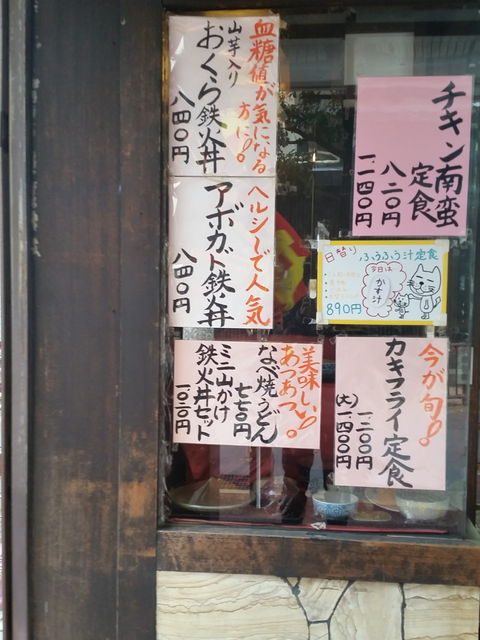 血糖値が気になる
方に!!
山芋入り
おくら鉄火丼
八四〇円
ヘルシーで人気
アボカド鉄火丼
八四〇円
チキン南蛮
定食
八二〇円
一、二四〇円
日替り
ふうふう汁定食
今日は
かす汁
890円
美味しい!!
あつあつ。
なべ焼うどん
七七〇円
ミニ山かけ
鉄火丼セット
一、〇二〇円
今が旬!!
カキフライ定食
一、二〇〇円
(大)一、四〇〇円